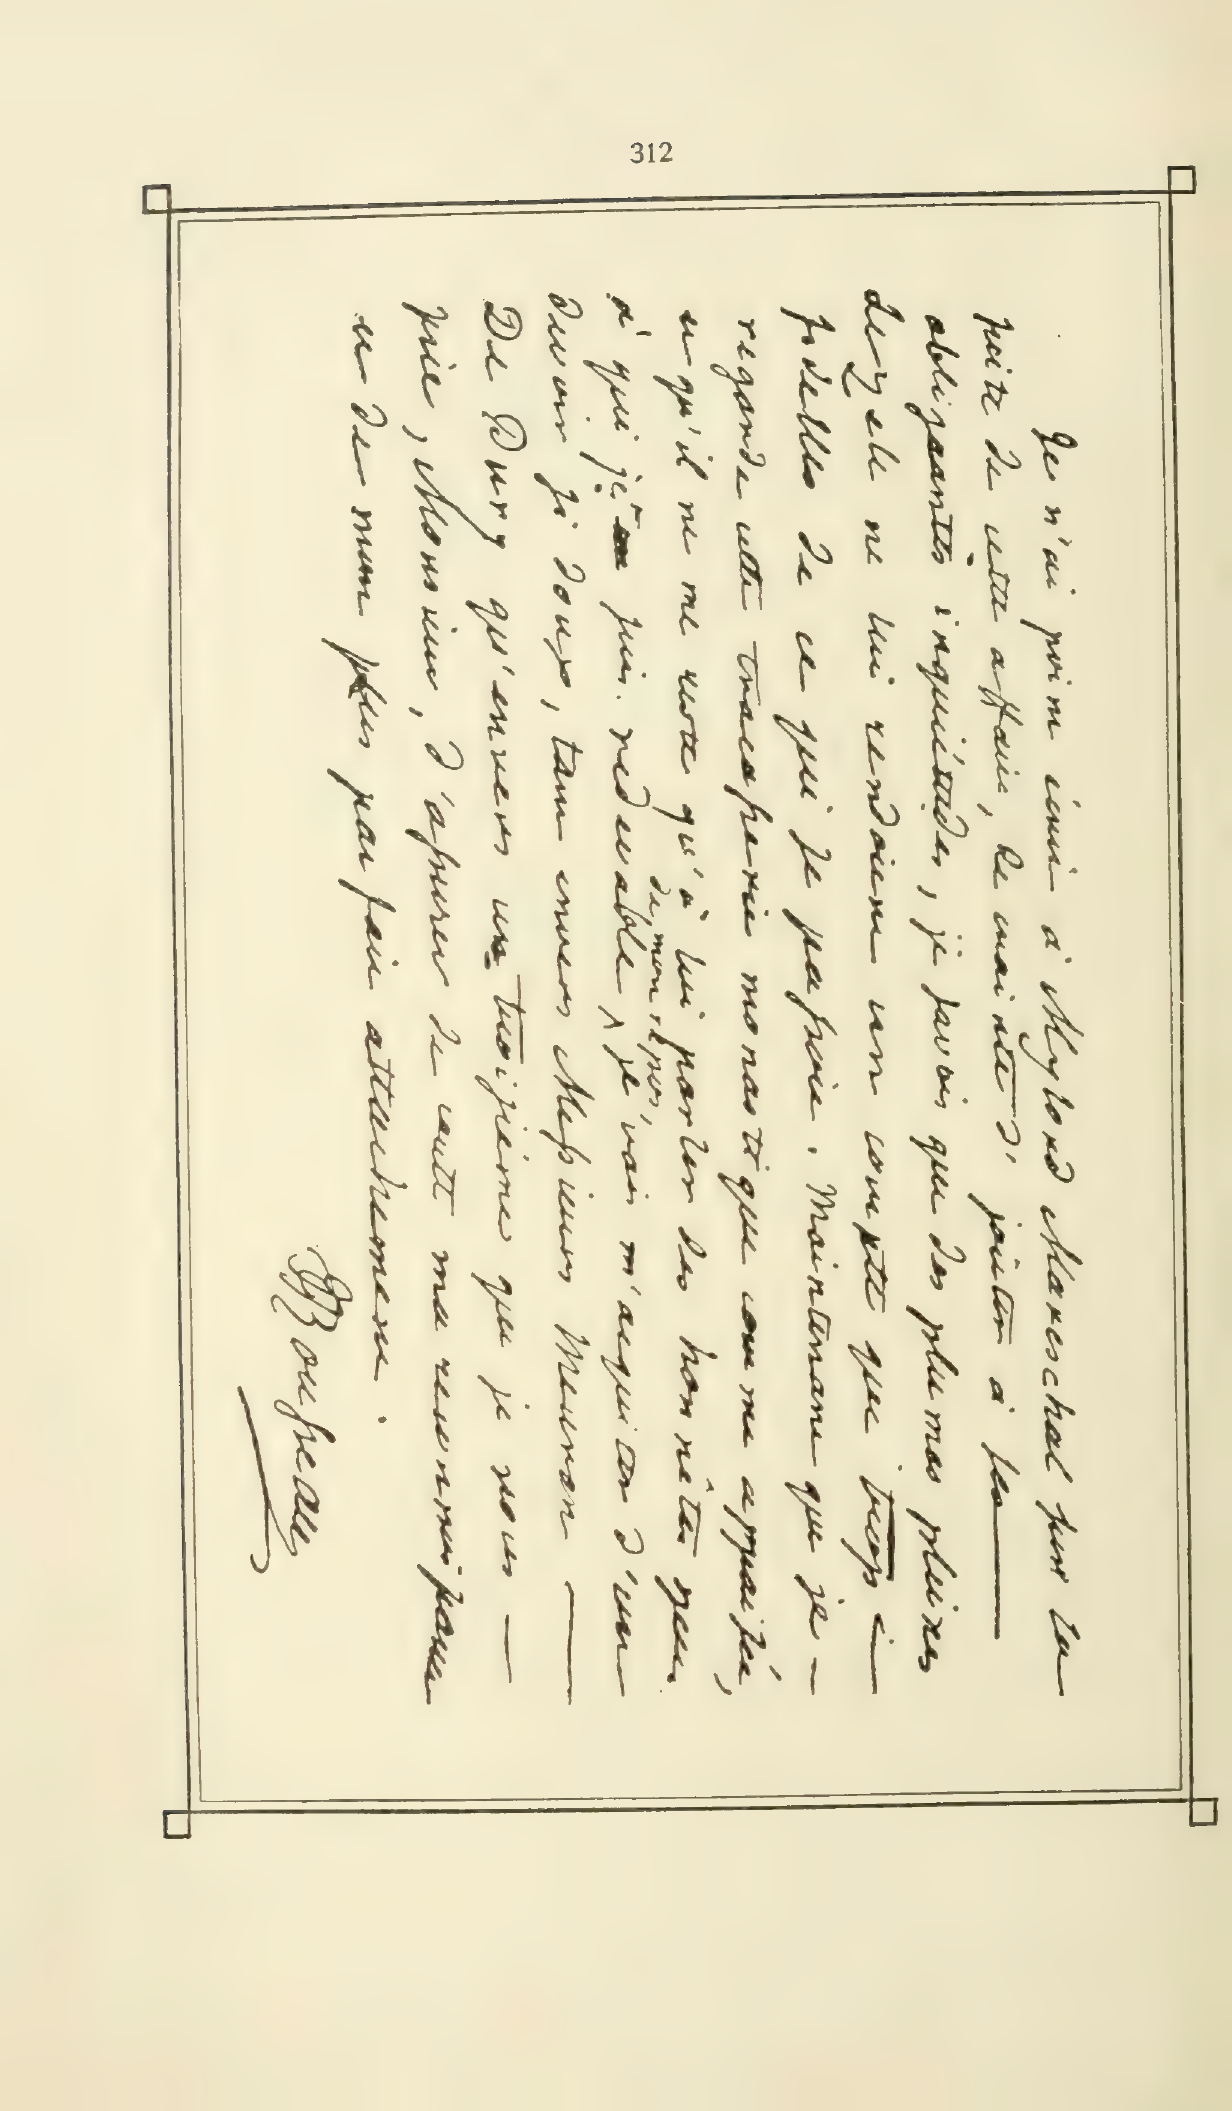 312
Je n'ai point écrit à Mylord Mareschal sur la
suite de cette affaire, de crainte d'ajouter à ses
obligeantes inquiétudes, je savois que des plumes pleines
de zele ne lui rendoient un compte que trop
fidelle de ce qui se passoit. Maintenant que je
regarde cette tracasserie monastique comme appaisée,
et qu'il ne me reste qu'à lui parler des honnêtes gens
à qui j'en suis redevable
de mon repos,
je vais m'acquiter d'un
devoir si doux, tant envers Messieurs Meuron
De Pury qu'envers un troisiéme que je vous
prie, Monsieur, d'assurer de toute ma reconnoissance
et de mon plus parfait attachement.
JJRousseau